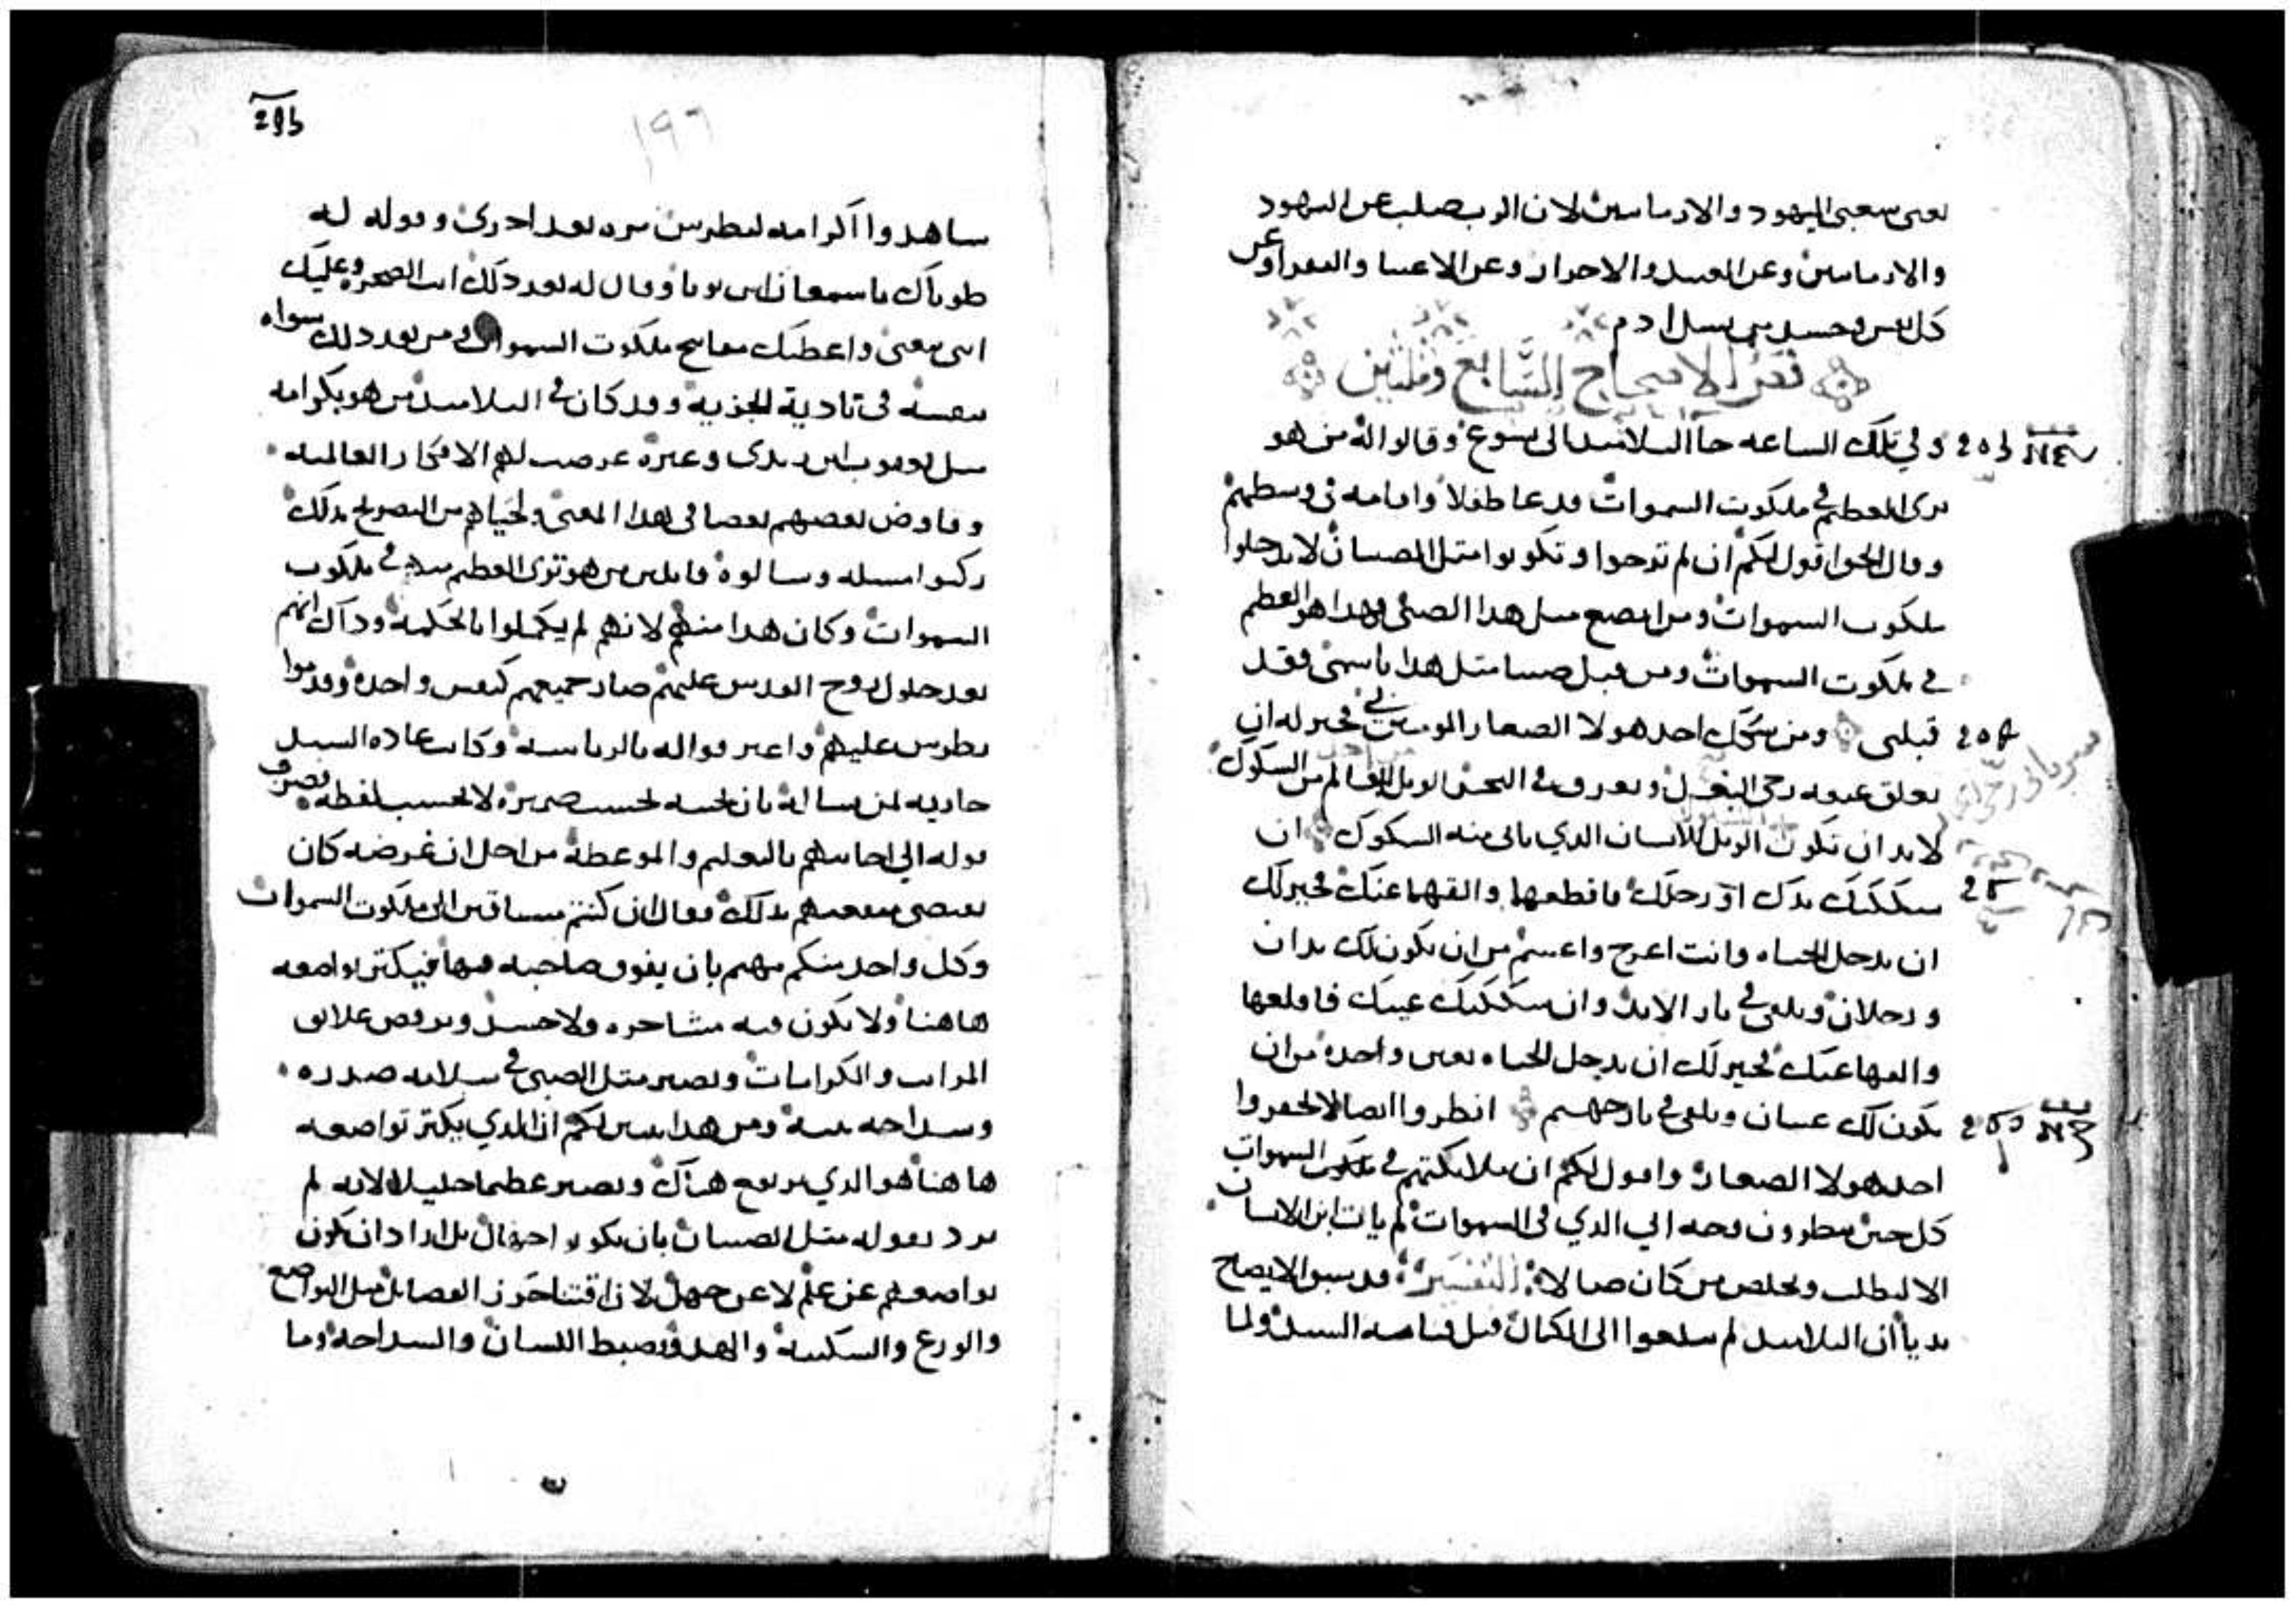 يعنى شعبى اليهود والارمايين لان الرب صلب عن اليهود
والارمايين وعن العبيد والاحرار وعن الاغنيا والفقرا وعن
كل نفس وجسد من نسل ادم
فص الاصحاح السابع وثلثين
وفي تلك الساعه جا التلاميذ الى يسوع وقالوا له من هو
ترى العظيم في ملكوت السموات فدعا طفلا واقامه في وسطهم
وقال الحق اقول لكم ان لم ترجعوا وتكونوا مثل الصبيان لا تدخلوا
ملكوت السموات ومن اتضع مثل هذا الصبي فهذا هو العظيم
في ملكوت السموات ومن قبل صبيا مثل هذا باسمي فقد
قبلني ومن شكك احد هولا الصغار المومنين بي فخير له ان
تعلق عنقه رحى البغل ويغرق في البحر الويل للعالم من الشكوك
لابد ان تكون الويل للانسان الذي ياتي منه الشكوك ان
شككتك يدك او رجلك فاقطعها والقها عنك فخير لك
ان تدخل الحياه وانت اعرج واعسم من ان يكون لك يدان
ورجلان وتلقى في نار الابد وان شككتك عينك فاقلعها
والقها عنك فخير لك ان تدخل الحياه بعين واحده من ان
يكون لك عينان وتلقى في نار جهنم انظروا ايضا لا تحقروا
احد هولا الصغار واقول لكم ان ملايكتهم في ملكوت السموات
كل حين ينظرون وجه ابي الذي في السموات لم يات ابن الانسان
الا ليطلب ويخلص من كان ضالا التفسير قد سبق الايضاح
بديا ان التلاميذ لم يبلغوا الى الكمال قبل قيامه السيد ولما
295
١٩٦
شاهدوا اكرامه لبطرس مره بعد اخرى وقوله له
طوباك يا سمعان ابن يونا وقال له بعد ذلك انت الصخره وعليك
ابني بيعتي واعطيك مفاتيح ملكوت السموات ومن بعد ذلك سواه
بنفسه في تادية الجزيه وقد كان في التلاميذ من هو بكرامه
مثل يعقوب ابن زبدى وغيره عرضت لهم الافكار العالميه
وفاوض بعضهم بعضا في هذا المعنى ولحياهم من التصريح بذلك
ركبوا مسله وسالوه قايلين من هو ترى العظيم منا في ملكوت
السموات وكان هذا منهم لانهم لم يكملوا بالحكمه وذاك انهم
بعد حلول روح القدس عليهم صار جميعهم كنفس واحده وقدموا
بطرس عليهم واعترفوا له بالرياسه وكانت عاده السيد
جاريه لمن يساله بان يجيبه بحسب ضميره لا بحسب لفظه فصرف
قوله الى اجابتهم بالتعليم والموعظه من اجل ان غرضه كان
يقتضي منفعتهم بذلك فقال ان كنتم مشتاقين الى ملكوت السموات
وكل واحد منكم مهتم بان يفوق صاحبه فيها فيكثر تواضعه
هاهنا ولا يكون فيه مشاجره ولا حسد ويرفض علايق
المراتب والكرامات ويصير مثل الصبي في سلامه صدره
وسداجه نيته ومن هذا يتبين لكم ان الذي يكثر تواضعه
هاهنا هو الذي يرتفع هناك ويصير عظيما جليلا لانه لم
يرد بقوله مثل الصبيان بان يكونوا جهال بل اراد ان يكون
تواضعهم عن علم لا عن جهل لان اقتنا حوز الفضايل مثل التواضع
والورع والسكينه والهدو وضبط اللسان والسداجه وما